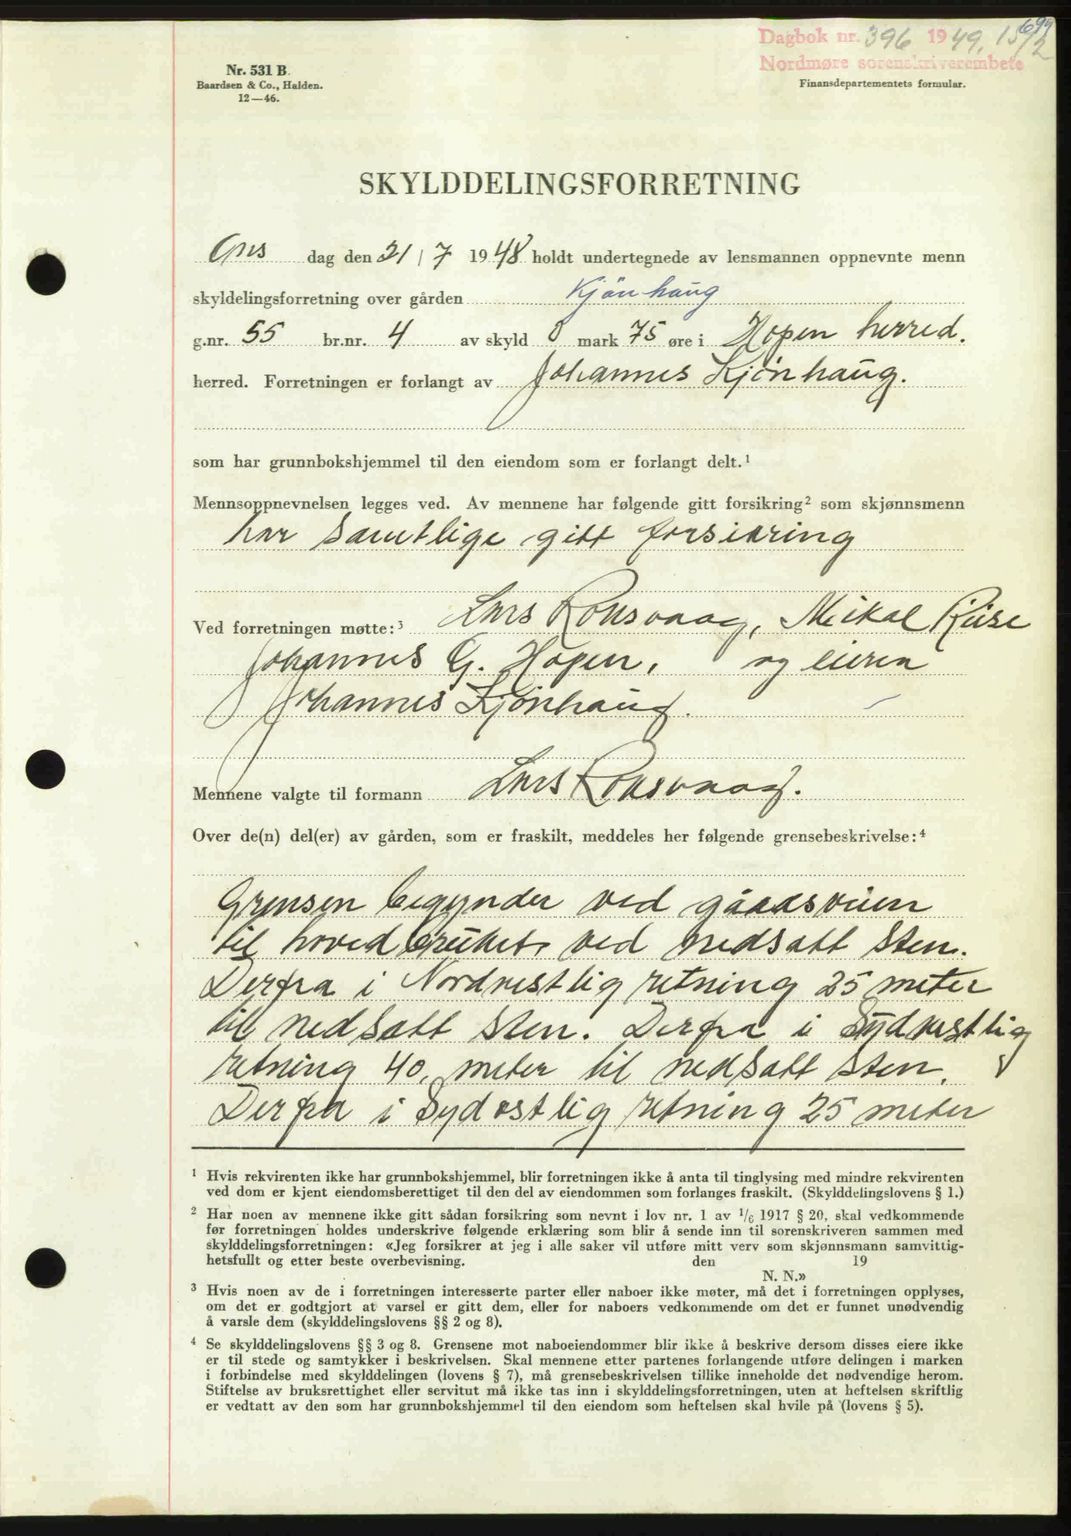 699
Dagbok nr. 396 1949. 15/2
Nordmøre sorenskriverembete
Nr. 531 B.
Baardsen & Co., Halden.
12—46.
Finansdepartementets formular.
SKYLDDELINGSFORRETNING
Ons dag den 21/7 1948 holdt undertegnede av lensmannen oppnevnte menn
skyldelingsforretning over gården Kjönhaug
g.nr. 55 br.nr. 4 av skyld 0 mark 75 øre i Hopen herred.
herred. Forretningen er forlangt av Johannes Kjönhaug.
som har grunnbokshjemmel til den eiendom som er forlangt delt.¹
Mennsoppnevnelsen legges ved. Av mennene har følgende gitt forsikring² som skjønnsmenn
har samtlige gitt forsikring
Ved forretningen møtte:³ Lars Ronsvaag, Mikal Riise
Johannes G. Hopen, og eieren
Johannes Kjönhaug.
Mennene valgte til formann Lars Ronsvaag.
Over de(n) del(er) av gården, som er fraskilt, meddeles her følgende grensebeskrivelse:⁴
Grensen begynder ved gåadsveien
til hovedbruket, ved nedsatt sten.
Derfra i Nordvestlig retning 25 meter
til nedsatt sten. Derfra i Sydvestlig
retning 40, meter til nedsatt sten.
Derfra i Sydostlig retning 25 meter
¹ Hvis rekvirenten ikke har grunnbokshjemmel, blir forretningen ikke å anta til tinglysing med mindre rekvirenten
ved dom er kjent eiendomsberettiget til den del av eiendommen som forlanges fraskilt. (Skylddelingslovens § 1.)
² Har noen av mennene ikke gitt sådan forsikring som nevnt i lov nr. 1 av 1/6 1917 § 20, skal vedkommende
før forretningen holdes underskrive følgende erklæring som blir å sende inn til sorenskriveren sammen med
skylddelingsforretningen: «Jeg forsikrer at jeg i alle saker vil utføre mitt verv som skjønnsmann samvittig-
hetsfullt og etter beste overbevisning. den 19
N. N.»
³ Hvis noen av de i forretningen interesserte parter eller naboer ikke møter, må det i forretningen opplyses,
om det er godtgjort at varsel er gitt dem, eller for naboers vedkommende om det er funnet unødvendig
å varsle dem (skylddelingslovens §§ 2 og 8).
⁴ Se skylddelingslovens §§ 3 og 8. Grensene mot naboeiendommer blir ikke å beskrive dersom disses eiere ikke
er til stede og samtykker i beskrivelsen. Skal mennene etter partenes forlangende utføre delingen i marken
i forbindelse med skylddelingen (lovens § 7), må grensebeskrivelsen tillike inneholde det nødvendige herom.
Stiftelse av bruksrettighet eller servitut må ikke tas inn i skylddelingsforretningen, uten at heftelsen skriftlig
er vedtatt av den som har grunnbokshjemmel til den eiendom som heftelsen skal hvile på (lovens § 5).